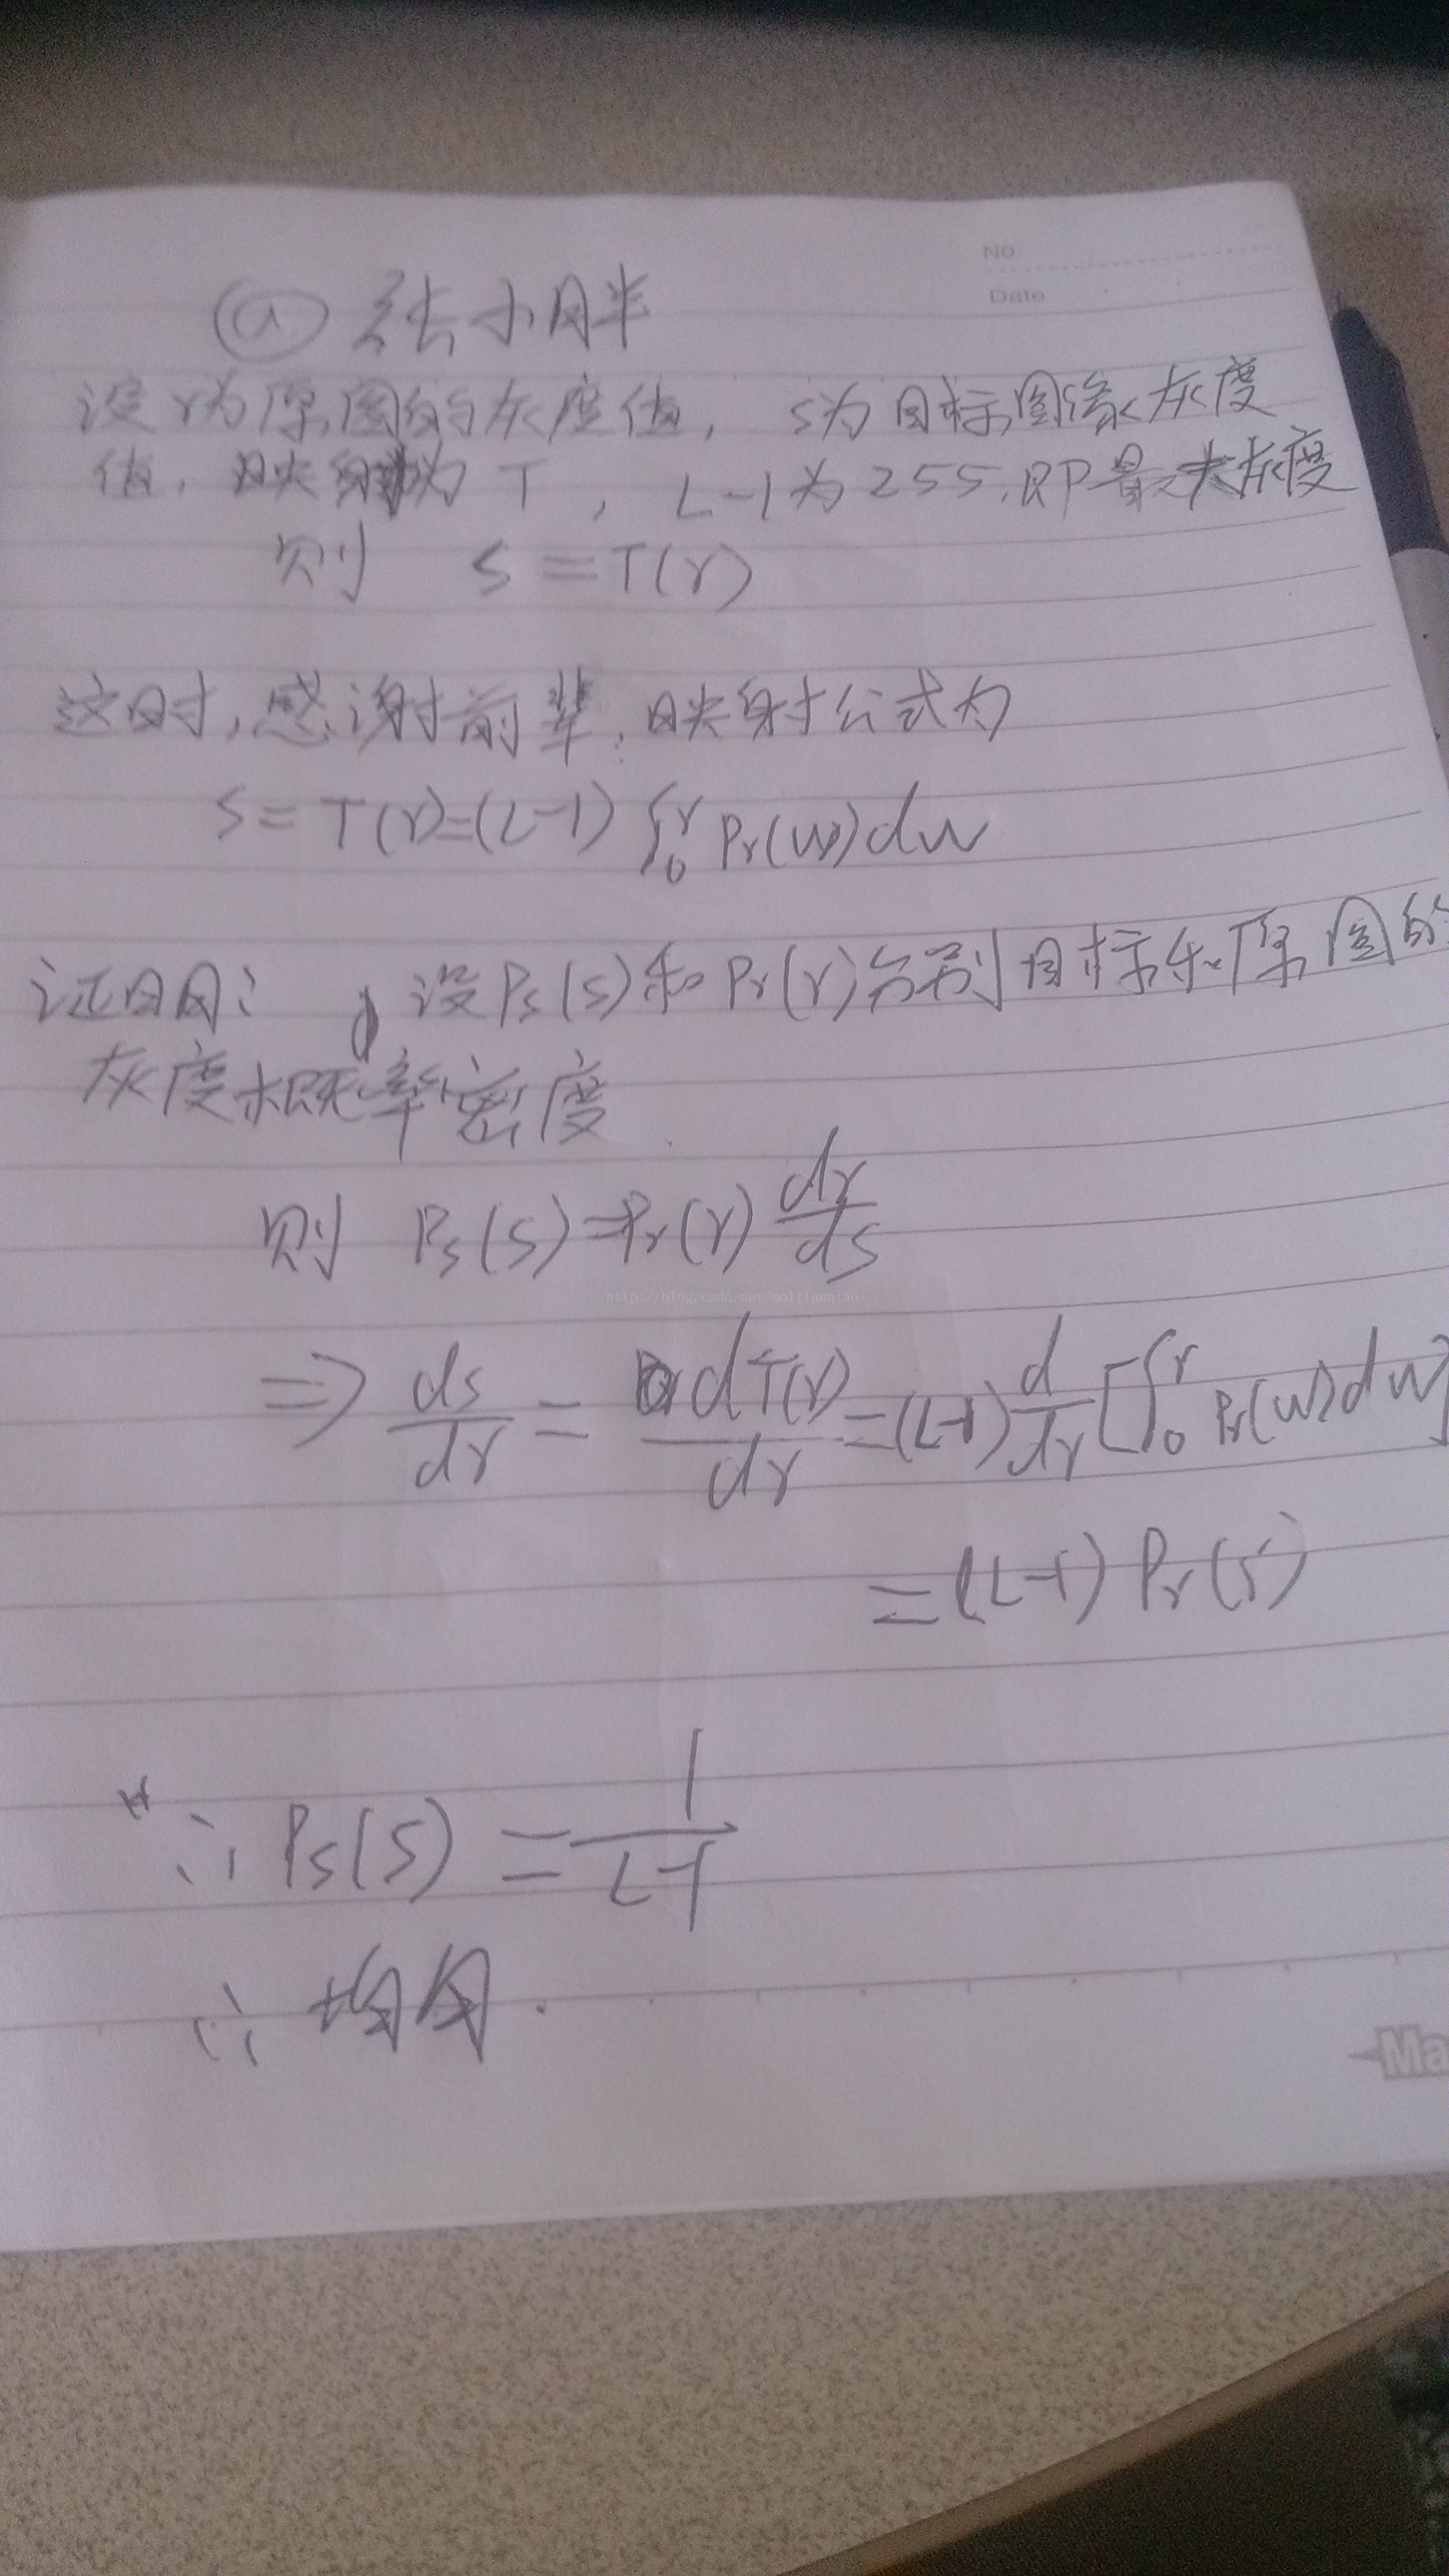 No.
Date
@ 张小胖
设r为原图的灰度值，s为目标图像灰度
值，映射为T，L-1为255，即最大灰度
则 s=T(r)
这时，感谢前辈，映射公式为
s=T(r)=(L-1)∫₀ʳ Pr(w)dw
证明： 设Ps(s)和Pr(r)分别目标和原图的
灰度概率密度
则 Ps(s)=Pr(r) dr/ds
http://blog.csdn.net/maltianqiao
⇒ ds/dr = dT(r)/dr =(L-1) d/dr [∫₀ʳ Pr(w)dw]
=(L-1) Pr(r)
∴ Ps(s) = 1/(L-1)
∴ 均匀.
Ma